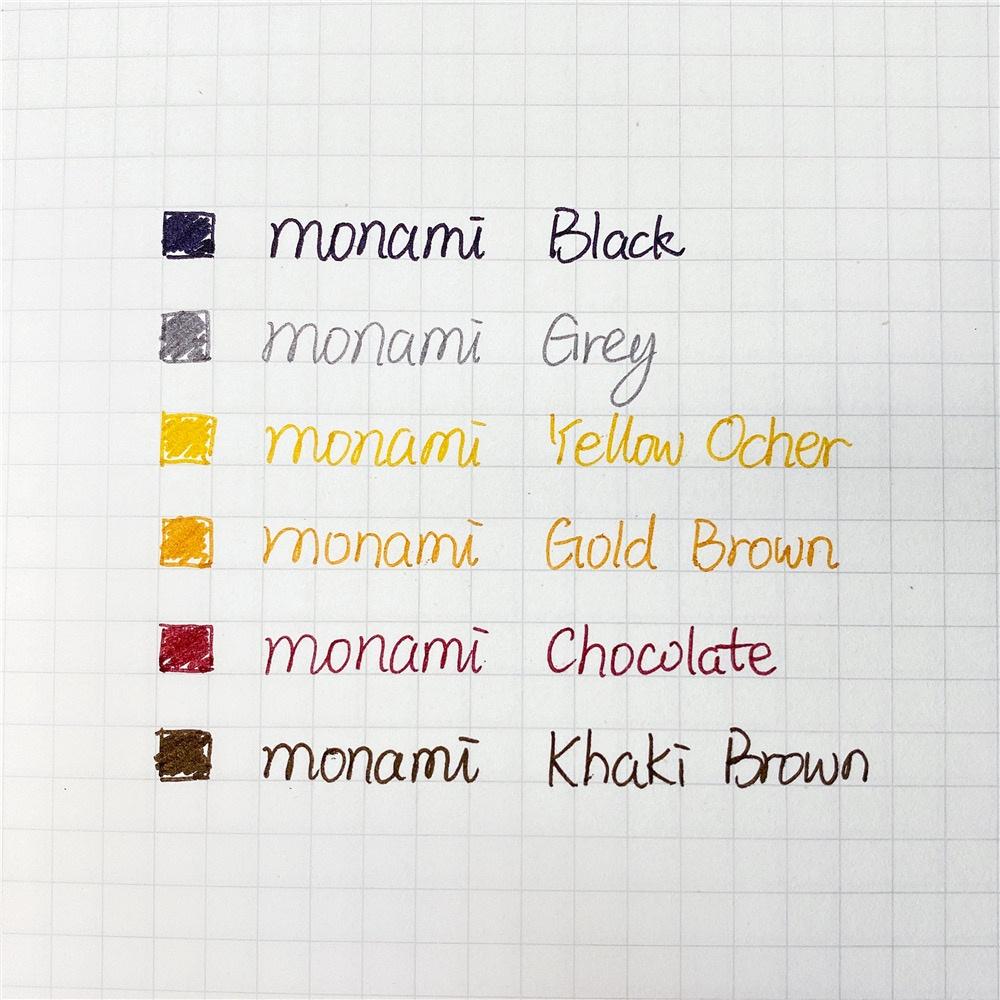 monami Black
monami Grey
monami Yellow Ocher
monami Gold Brown
monami Chocolate
monami Khaki Brown